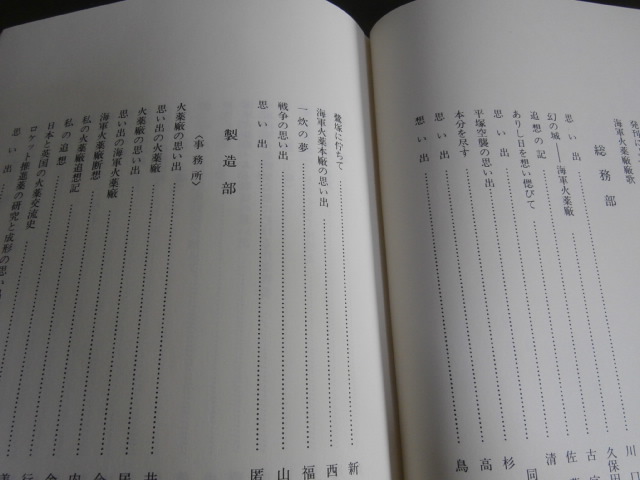 海軍火薬廠廠歌
総務部
思い出
幻の城――海軍火薬廠
追想の記
ありし日を想い偲びて
思い出
平塚空襲の思い出
本分を尽す
想い出
鷺塚に佇ちて
海軍火薬本廠の思い出
一炊の夢
戦争の思い出
思い出
製造部
〈事務所〉
火薬廠の思い出
思い出の火薬廠
火薬廠の思い出
思い出の海軍火薬廠
海軍火薬廠断想
私の火薬廠追想記
私の追想
日本と英国の火薬交流史
ロケット推進薬の研究と成形の思い出
思い出
川口
久保田
古
佐
清
同
杉
高
島
新
西
福
山
匿